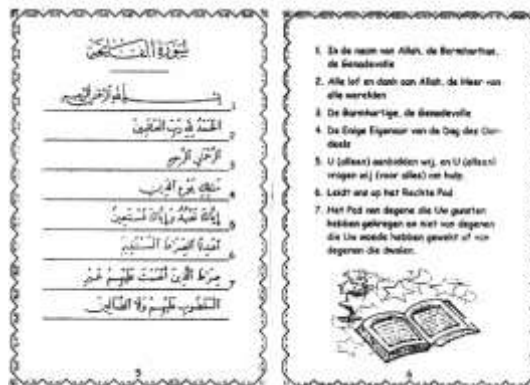 سُورَةُ الْفَاتِحَةِ
بِسْمِ اللَّهِ الرَّحْمَٰنِ الرَّحِيمِ 1
الْحَمْدُ لِلَّهِ رَبِّ الْعَالَمِينَ 2
الرَّحْمَٰنِ الرَّحِيمِ 3
مَالِكِ يَوْمِ الدِّينِ 4
إِيَّاكَ نَعْبُدُ وَإِيَّاكَ نَسْتَعِينُ 5
اهْدِنَا الصِّرَاطَ الْمُسْتَقِيمَ 6
صِرَاطَ الَّذِينَ أَنْعَمْتَ عَلَيْهِمْ غَيْرِ 7
الْمَغْضُوبِ عَلَيْهِمْ وَلَا الضَّالِّينَ
5
1. In de naam van Allah, de Barmhartige,
de Genadevolle
2. Alle lof en dank aan Allah, de Heer van
alle werelden
3. De Barmhartige, de Genadevolle
4. De Enige Eigenaar van de Dag des Oor-
deels
5. U (alleen) aanbidden wij, en U (alleen)
vragen wij (voor alles) om hulp.
6. Leidt ons op het Rechte Pad
7. Het Pad van degene die Uw gunsten
hebben gekregen en niet van degenen
die Uw woede hebben gewekt of van
degenen die dwalen.
6